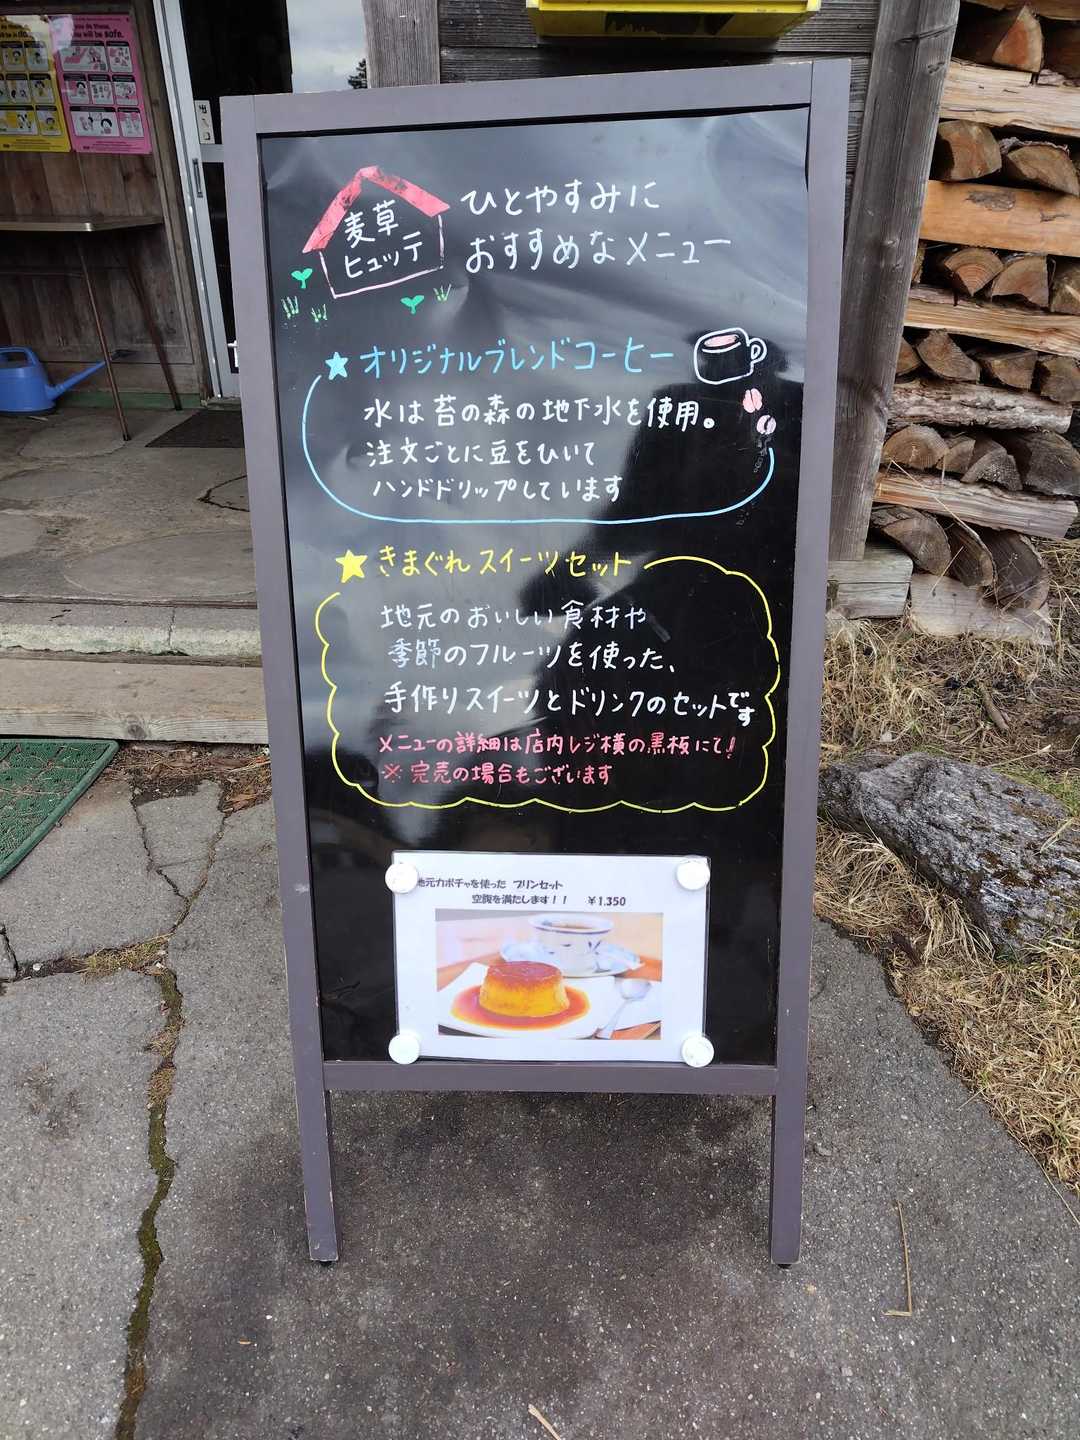 麦草
ヒュッテ
ひとやすみに
おすすめなメニュー
★オリジナルブレンドコーヒー
水は苔の森の地下水を使用。
注文ごとに豆をひいて
ハンドドリップしています
★きまぐれスイーツセット
地元のおいしい食材や
季節のフルーツを使った、
手作りスイーツとドリンクのセットです
メニューの詳細は店内レジ横の黒板にて!
※完売の場合もございます
地元カボチャを使った プリンセット
空腹を満たします!! ¥1,350